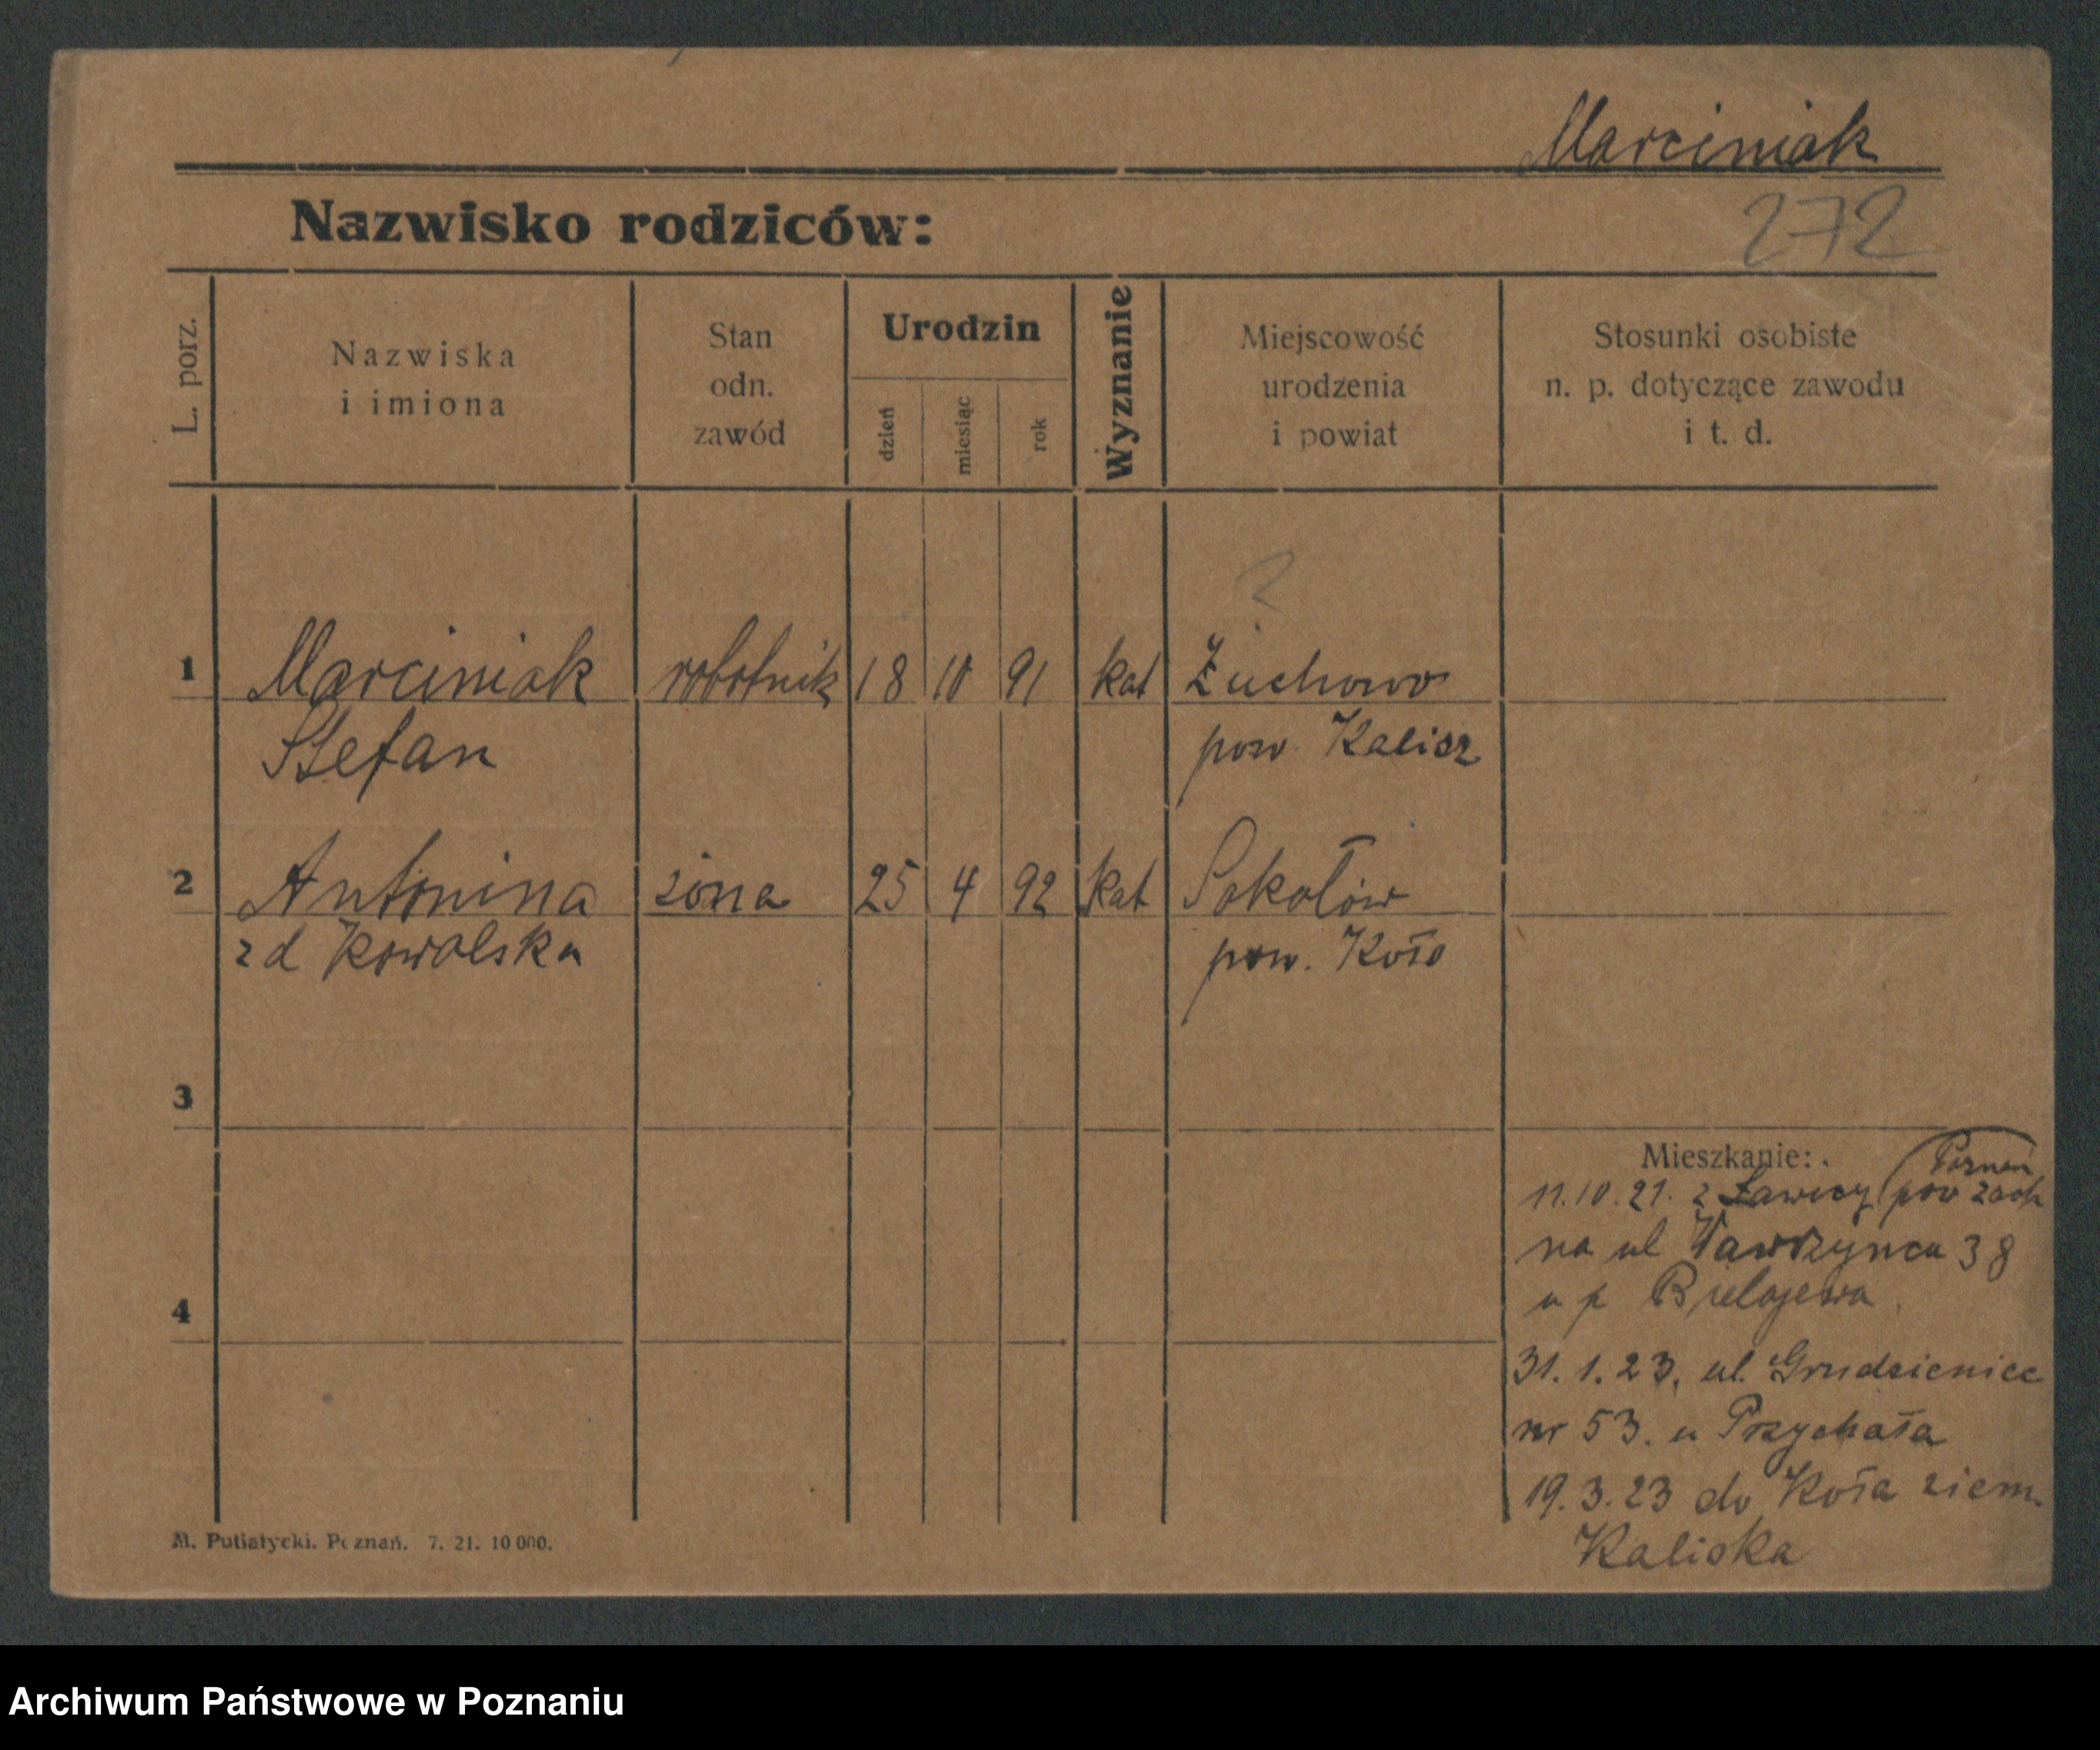 Marciniak
272
Nazwisko rodziców:
L. porz.
Nazwiska
i imiona
Stan
odn.
zawód
Urodzin
dzień
miesiąc
rok
Wyznanie
Miejscowość
urodzenia
i powiat
Stosunki osobiste
n. p. dotyczące zawodu
i t. d.
?
1 Marciniak robotnik 18 10 91 kat Żuchowo
Stefan pow. Kalisz
2 Antonina żona 25 4 92 kat Sokołów
zd Kowalska pow. Koło
3
Mieszkanie:
Poznań
11.10.21. z Ławicy (pow zach
na ul Wawrzynca 38
u p
4
31.1.23. ul. Grudzieniec
nr 53. u Przychała
19.3.23 do Koła ziem.
Kaliska
M. Putiatycki. Poznań. 7. 21. 10 000.
Archiwum Państwowe w Poznaniu